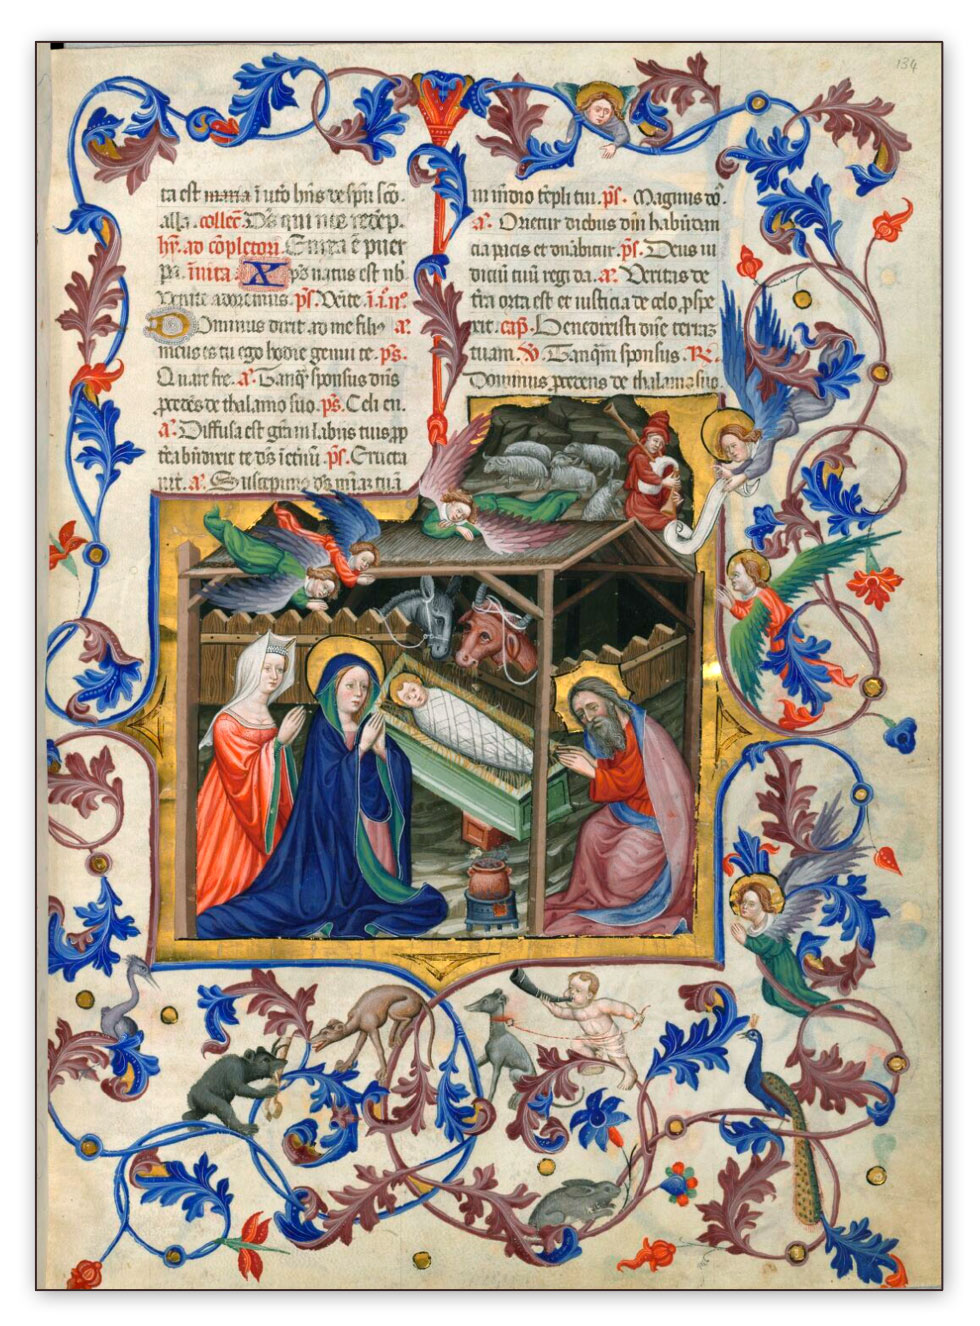 134
ta est maria i uto
alla. collec̄. Ds qui
hȳ. ad cōpletoriū. è puer
inuita Xp̄s natus est
Venite adoremus. ps̄. Venite
Dominus dixit ad me filiꝰ a͞.
meus es tu ego hodie genui te. ps̄.
Quare fre. a͞. Tanq̄ sponsus dn̄s
p̲cedēs de thalamo suo. ps̄. Celi en.
a͞. Diffusa est gr̄a in labijs tuis p̲p
te ds̄ ps̄. Eructa
uit. a͞. Suscepimꝰ ds̄ tuā
tēpli tui. ps̄. Magnus
a͞. Orietur diebus dn̄i habūdan
cia pacis et dn̄abitur. ps̄. Deus iu
diciū tuū regi da. a͞. Veritas de
t̄ra orta est et iusticia de celo p̲spe
xit. cap̄. Benedixisti dn̄e terram
tuam. V̄. Tanq̄m sponsus. R̄.
Dominus p̲cedens de thalamo suo